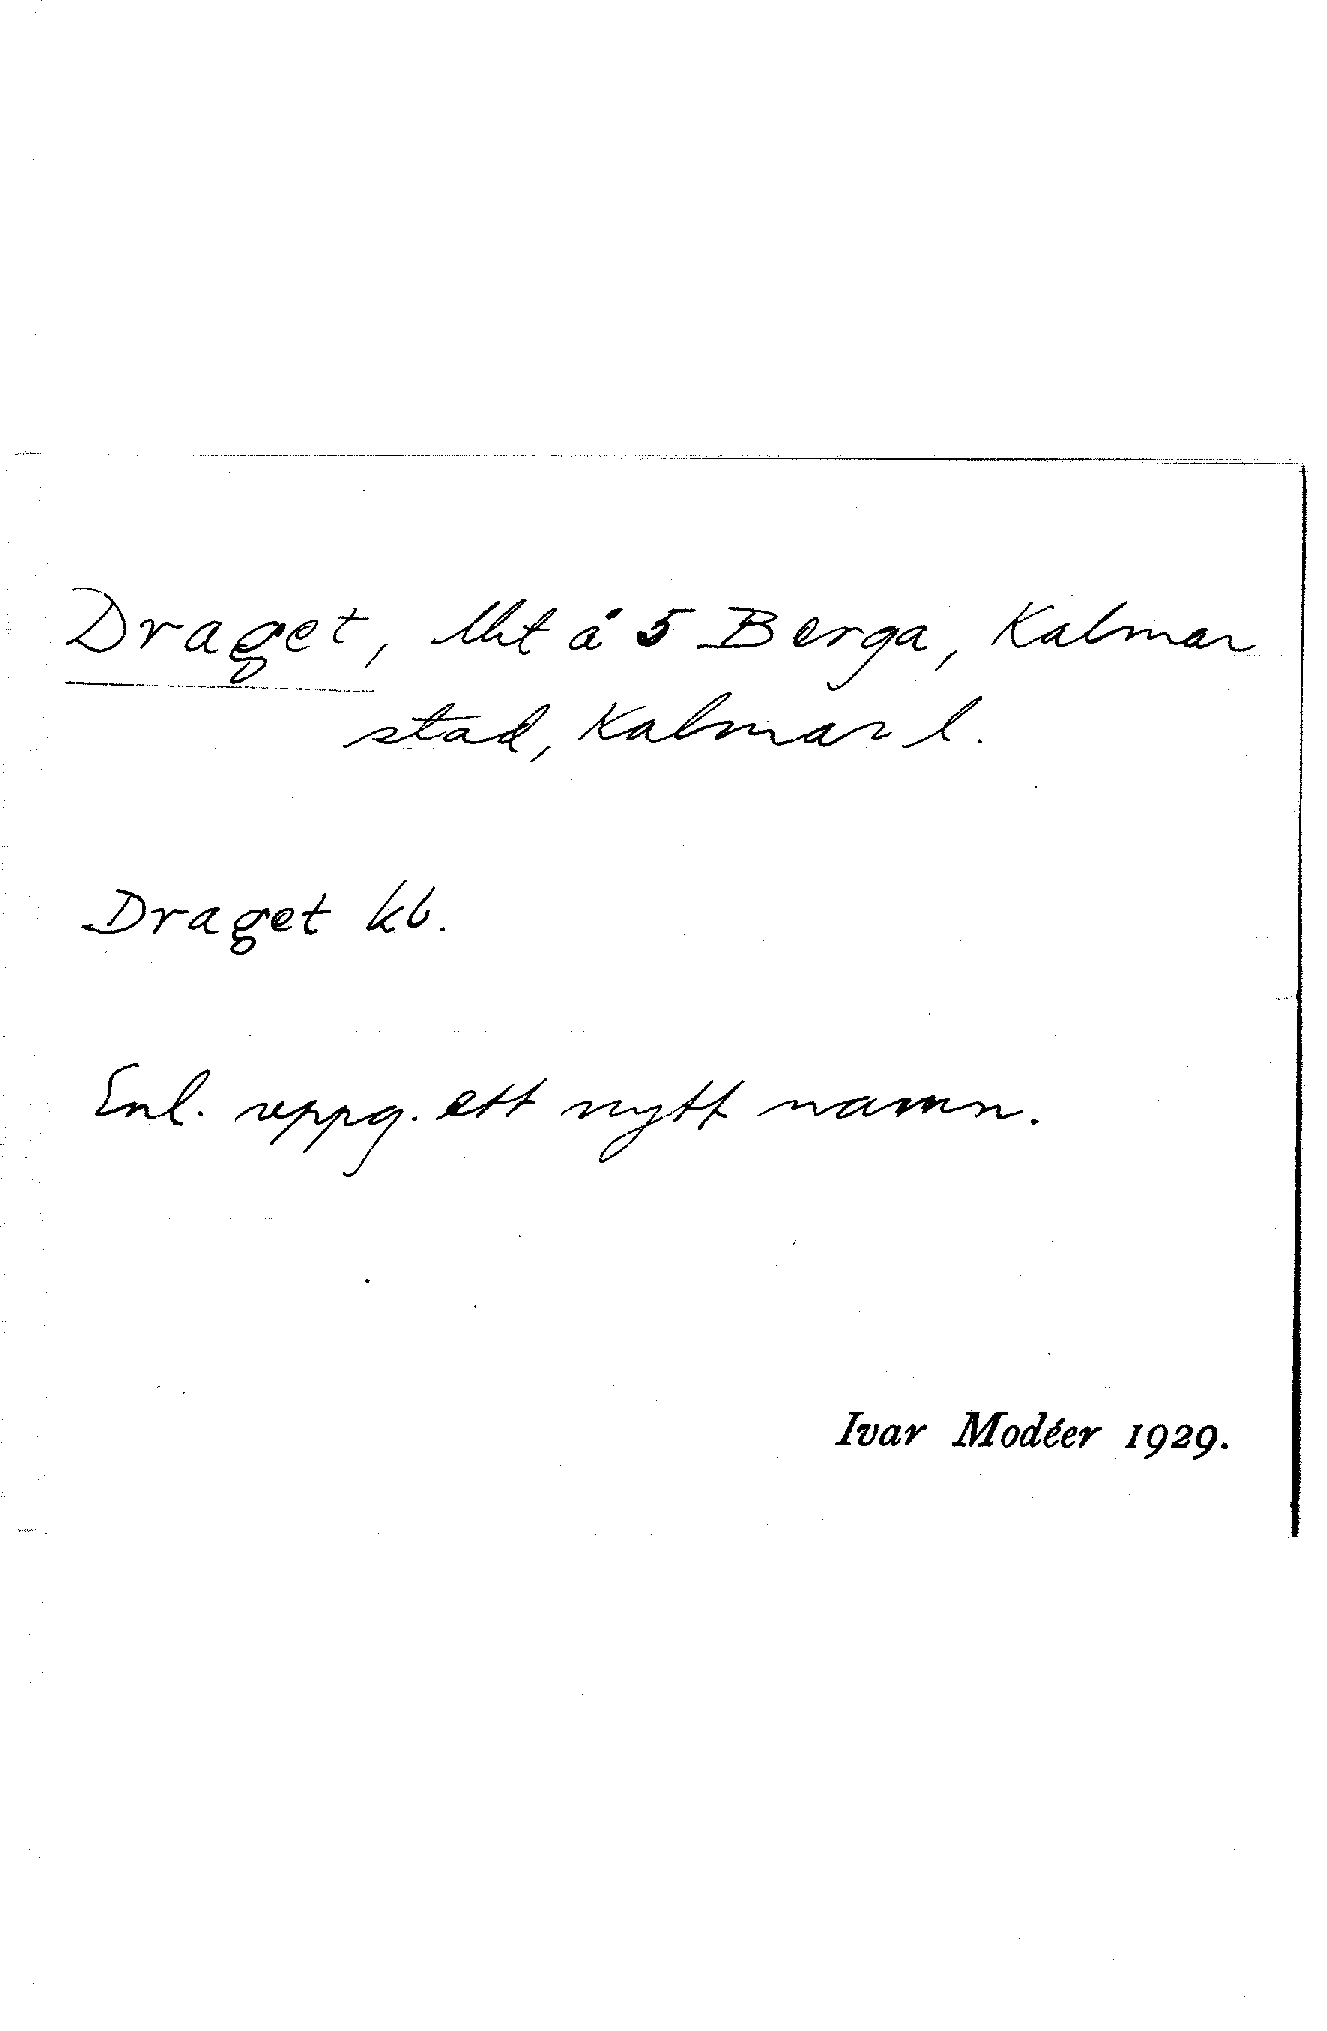 Draget, lht å 5 Berga, Kalmar
stad, Kalmar l.
Draget kb.
Enl. uppg. ett nytt namn.
Ivar Modéer 1929.